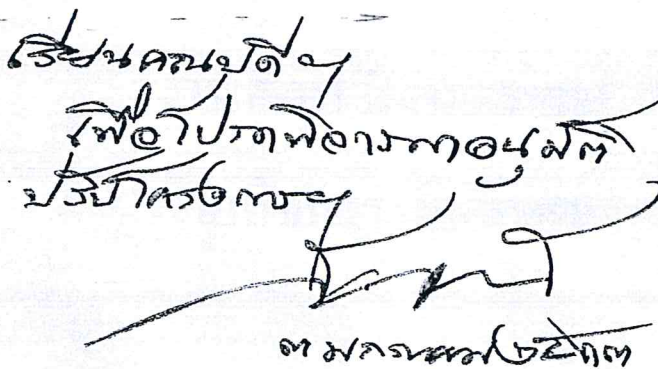 เรียนคณบดีฯ
เพื่อโปรดพิจารณาอนุมัติ
ปรับโครงการฯ
๓ มกราคม